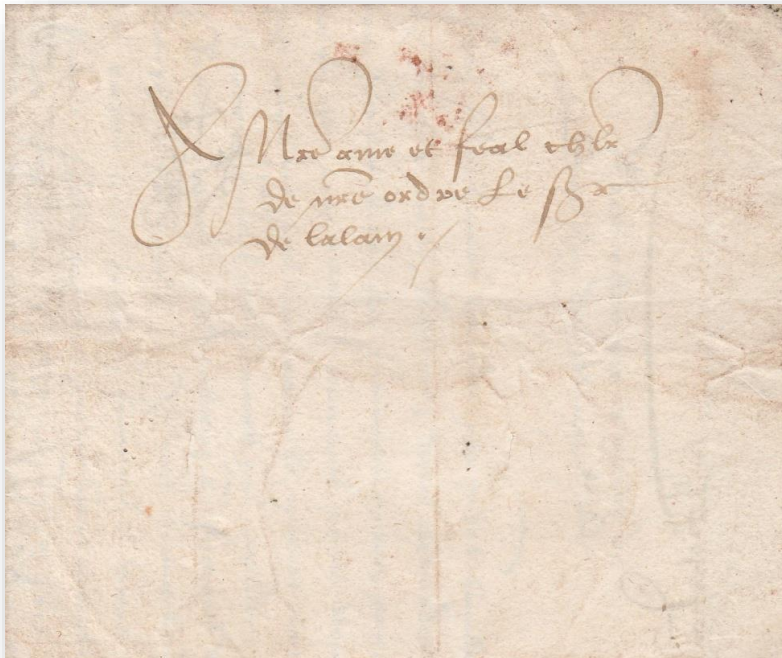 A Nr̃e ame et feal chlr̃
de nr̃e ordre le Sr
de lalaing.